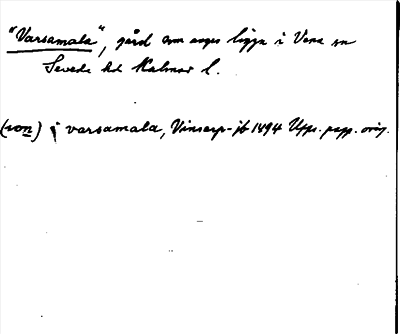 "Varsamala", gård som anges ligga i Vena sn
Sevede hd Kalmar l.
(son) i varsamala, Vinsarp-jb 1494 Upps. papp. orig.